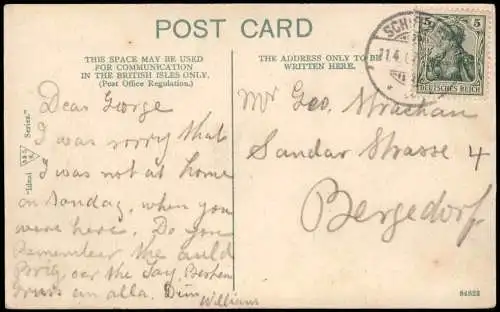 POST CARD
THIS SPACE MAY BE USED
FOR COMMUNICATION
IN THE BRITISH ISLES ONLY.
(Post Office Regulation.)
THE ADDRESS ONLY TO BE
WRITTEN HERE.
5 5
DEUTSCHES REICH
"Ideal Series."
Dear George
I was sorry that
I was not at home
on Sonday, when you
were here. Do you
Remember the auld
Brig, oer the Tay,
Gruss an alla.
William
Mr Geo. Strachan
Sandar Strasse 4
Bergedorf
84822